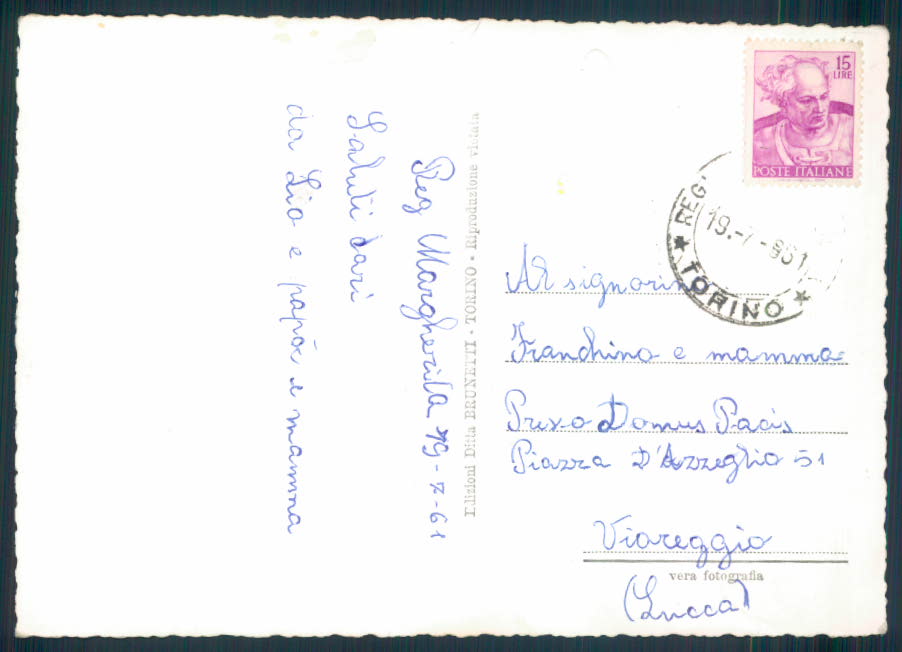 Reg Margherita 19-7-61
Saluti cari
da Lio e papà e mamma
Edizioni Ditta BRUNETTI - TORINO - Riproduzione vietata
15
LIRE
POSTE ITALIANE
REG
19.-7-961
TORINO
Al signorino
Franchino e mamma
Presso Domus Pacis
Piazza D'Azzeglio 51
Viareggio
vera fotografia
(Lucca)